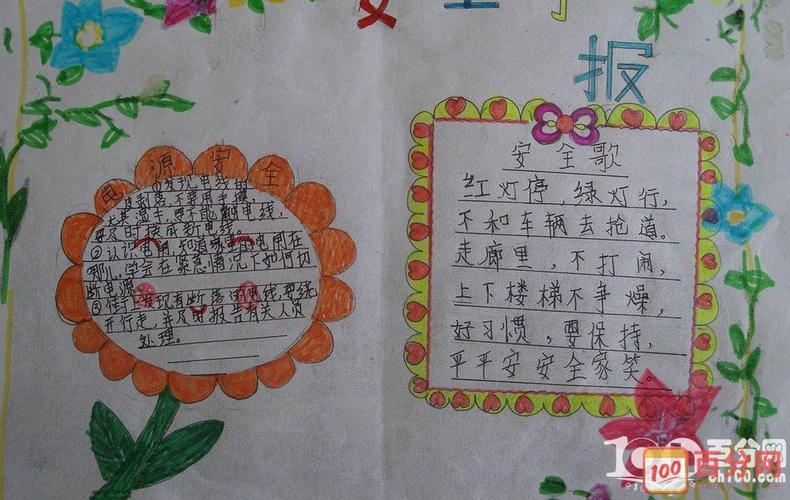 安全手
报
电源安全
①发现电线的
皮剥落,不要用手摸,
尤其湿手,更不能触电线,
要及时换成新电线。
②认识电闸,知道家里的电闸在
哪儿,学会在紧急情况下如何切
断电源
③街上发现有断落的电线,要绕
开行走,并及时报告有关人员
处理。
安全歌
红灯停,绿灯行,
不和车辆去抢道。
走廊里,不打闹,
上下楼梯不争燥,
好习惯,要保持,
平平安安全家笑。
100百分网
oh100.com
100百分网